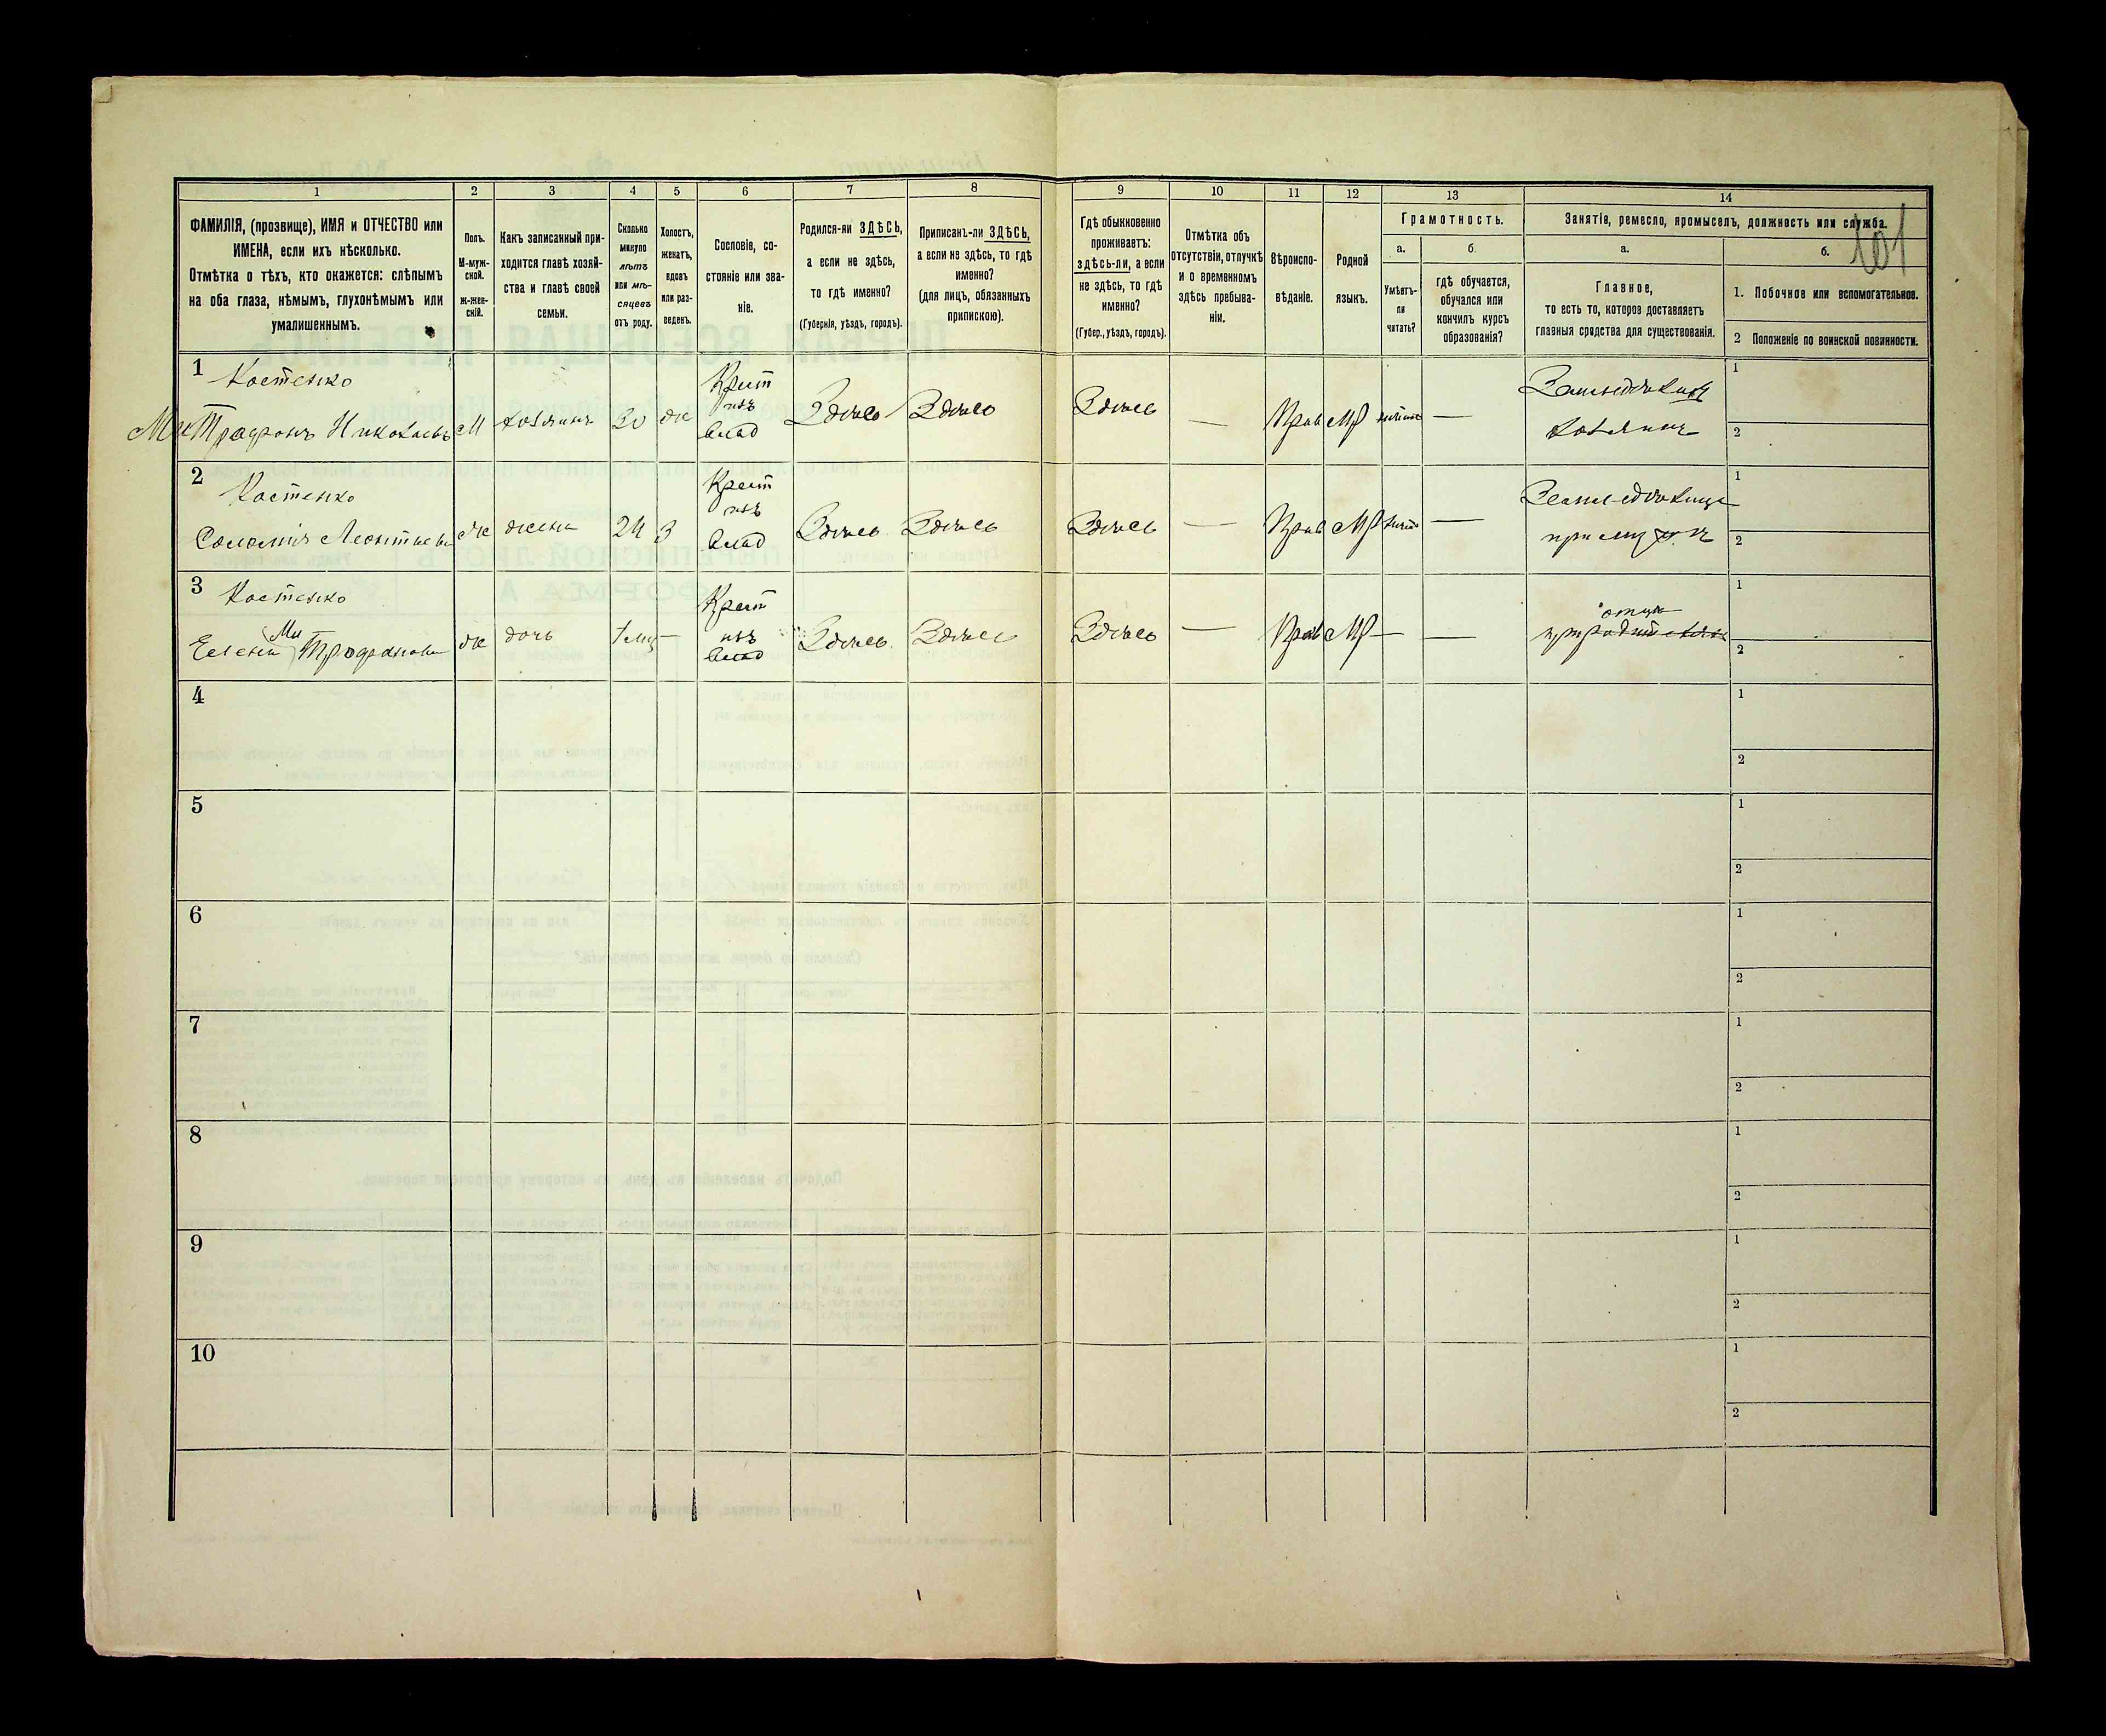 101
1 2 3 4 5 6 7 8 9 10 11 12 13 14
ФАМИЛІЯ, (прозвище), ИМЯ и ОТЧЕСТВО или
ИМЕНА, если ихъ нѣсколько.
Отмѣтка о тѣхъ, кто окажется: слѣпымъ
на оба глаза, нѣмымъ, глухонѣмымъ или
умалишеннымъ.
Полъ.
М-муж-
ской.
ж-жен-
скій.
Какъ записанный при-
ходится главѣ хозяй-
ства и главѣ своей
семьи.
Сколько
минуло
лѣтъ
или мѣ-
сяцевъ
отъ роду.
Холостъ,
женатъ,
вдовъ
или раз-
веденъ.
Сословіе, со-
стояніе или зва-
ніе.
Родился-ли ЗДѢСЬ,
а если не здѣсь,
то гдѣ именно?
(Губернія, уѣздъ, городъ).
Приписанъ-ли ЗДѢСЬ,
а если не здѣсь, то гдѣ
именно?
(для лицъ, обязанныхъ
припискою).
Гдѣ обыкновенно
проживаетъ:
здѣсь-ли, а если
не здѣсь, то гдѣ
именно?
(Губер., уѣздъ, городъ).
Отмѣтка объ
отсутствіи, отлучкѣ
и о временномъ
здѣсь пребыва-
ніи.
Вѣроиспо-
вѣданіе.
Родной
языкъ.
Грамотность.
а.
Умѣетъ-
ли
читать?
б.
гдѣ обучается,
обучался или
кончилъ курсъ
образованія?
Занятіе, ремесло, промыселъ, должность или служба.
а.
Главное,
то есть то, которое доставляетъ
главныя средства для существованія.
б.
1. Побочное или вспомогательное.
2 Положеніе по воинской повинности.
1 Костенко
Митрофанъ Николаевъ М хозяинъ 30 ж Крест изъ влад Здѣсь Здѣсь Здѣсь — Прав МР — Земледѣлецъ хозяинъ
1
2
2 Костенко
Соломія Леонтьева ж жена 24 З Крест изъ влад Здѣсь Здѣсь Здѣсь — Прав МР — при мужѣ
1
2
3 Костенко
Елена Митрофанова ж дочь 7 мц — Крест изъ влад Здѣсь Здѣсь Здѣсь — Прав МР — — при отцѣ
1
2
4
1
2
5
1
2
6
1
2
7
1
2
8
1
2
9
1
2
10
1
2